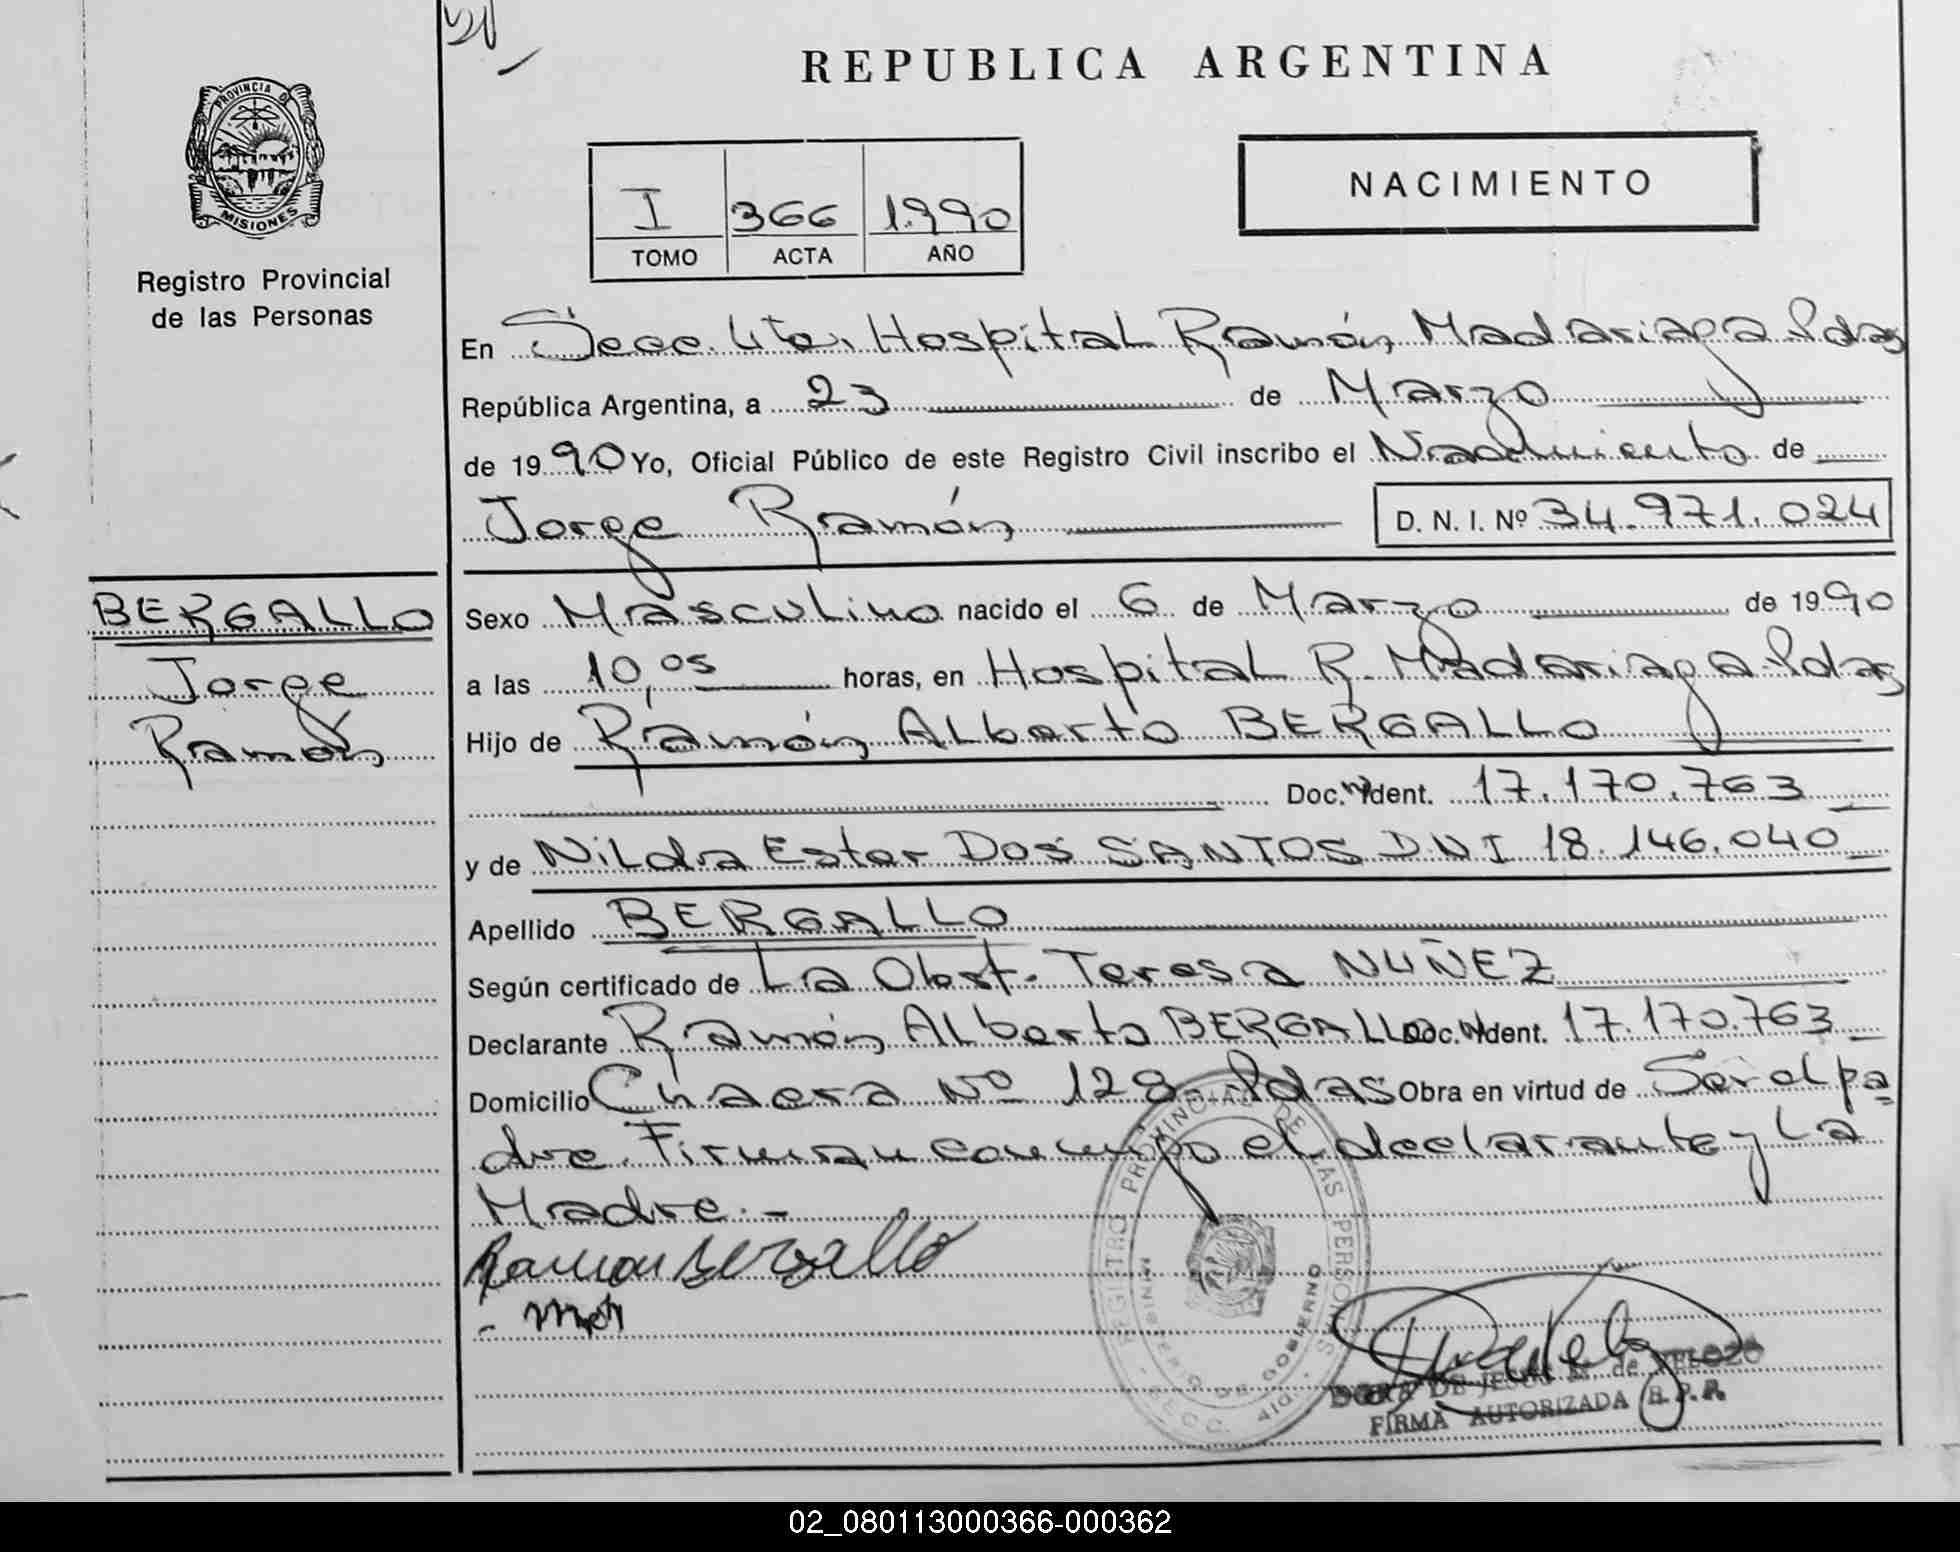 REPUBLICA ARGENTINA
PROVINCIA DE
MISIONES
Registro Provincial
de las Personas
I 366 1.990
TOMO ACTA AÑO
NACIMIENTO
En Secc. 4ta. Hospital Ramón Madariaga Pdas
República Argentina, a 23 de Marzo
de 1990 Yo, Oficial Público de este Registro Civil inscribo el Nacimiento de
Jorge Ramón D. N. I. Nº 34.971.024
BERGALLO
Jorge
Ramón
Sexo Masculino nacido el 6 de Marzo de 1990
a las 10,05 horas, en Hospital R. Madariaga Pdas
Hijo de Ramón Alberto BERGALLO
Doc. Ident. 17.170.763
y de Nilda Ester Dos SANTOS DNI 18.146.040
Apellido BERGALLO
Según certificado de La Obst. Teresa NUÑEZ
Declarante Ramón Alberto BERGALLO Doc. Ident. 17.170.763
Domicilio Chacra Nº 128 Pdas Obra en virtud de Ser el pa
dre. Firman conmigo el declarante y La
Madre.-
Ramon Bergallo
REGISTRO PROVINCIAL DE LAS PERSONAS
MINISTERIO DE GOBIERNO
DORA DE JESUS M. de VELOZO
FIRMA AUTORIZADA R.P.P.
02_080113000366-000362